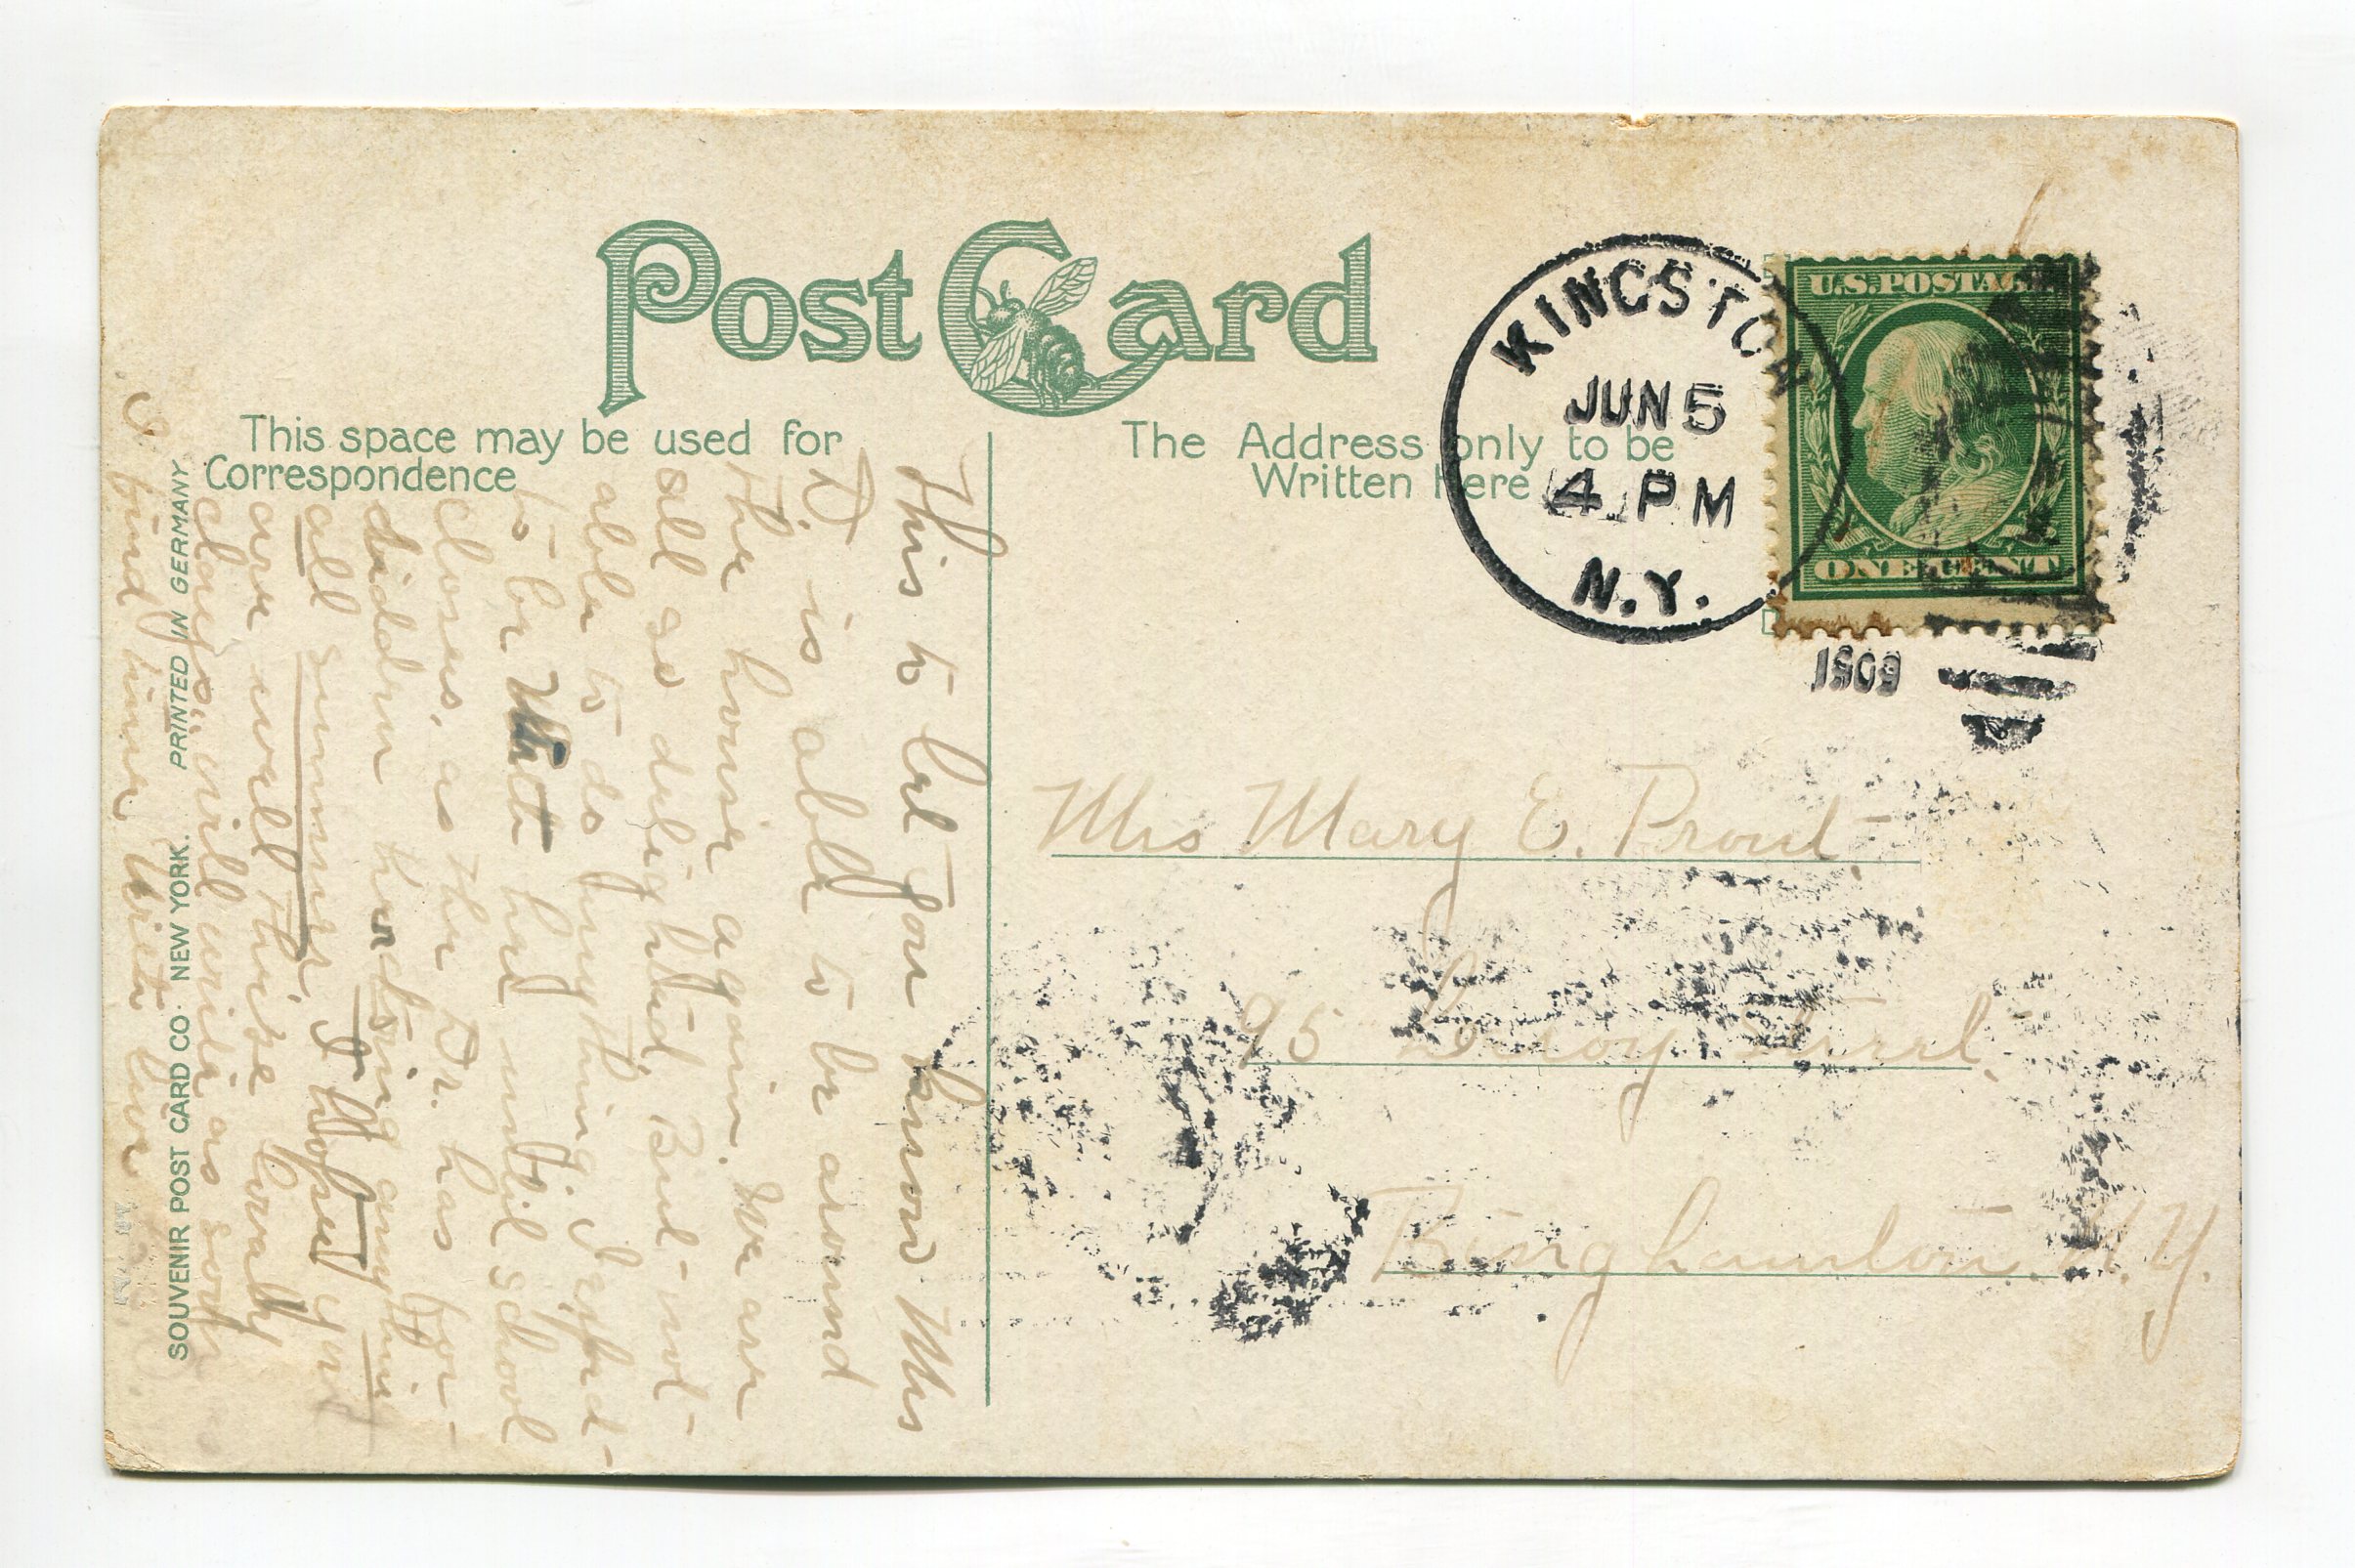 Post Card
This space may be used for
Correspondence
The Address only to be
Written Here
KINGSTON
JUN 5
4 PM
N.Y.
1909
U.S. POSTAGE
ONE CENT
Mrs Mary E. Prout
95 Leroy Street
Binghamton. N.Y.
This to let You know Mrs
D is able to be around
the house again. We are
all so delighted. But not
able to do anything. I expect
to be here until school
closes, as the Dr. has for-
bidden her doing anything
all summer. I hope you
are well these lovely
days. will write as soon
I find time. With love
PRINTED IN GERMANY
SOUVENIR POST CARD CO. NEW YORK.